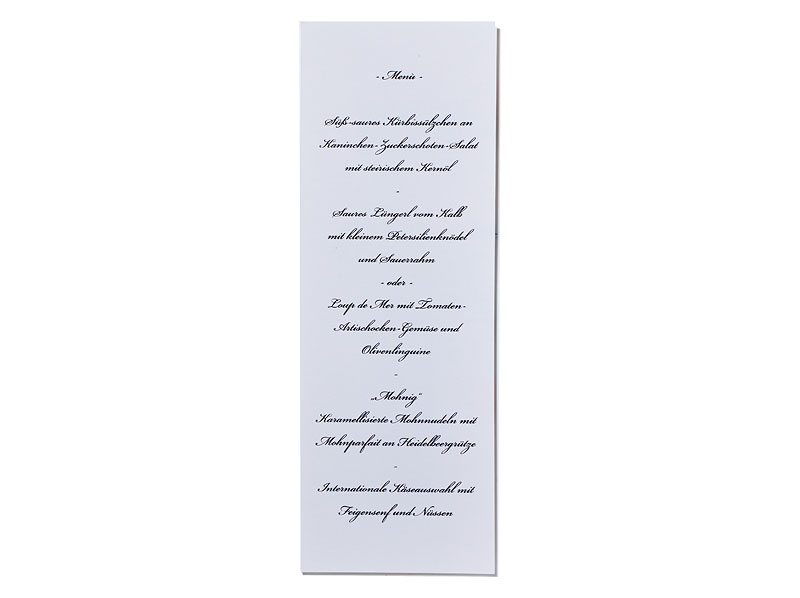 - Menü -
Süß-saures Kürbissülzchen an
Kaninchen-Zuckerschoten-Salat
mit steirischem Kernöl
-
Saures Lüngerl vom Kalb
mit kleinem Petersilienknödel
und Sauerrahm
- oder -
Loup de Mer mit Tomaten-
Artischocken-Gemüse und
Olivenlinguine
-
„Mohnig“
Karamellisierte Mohnnudeln mit
Mohnparfait an Heidelbeergrütze
-
Internationale Käseauswahl mit
Feigensenf und Nüssen